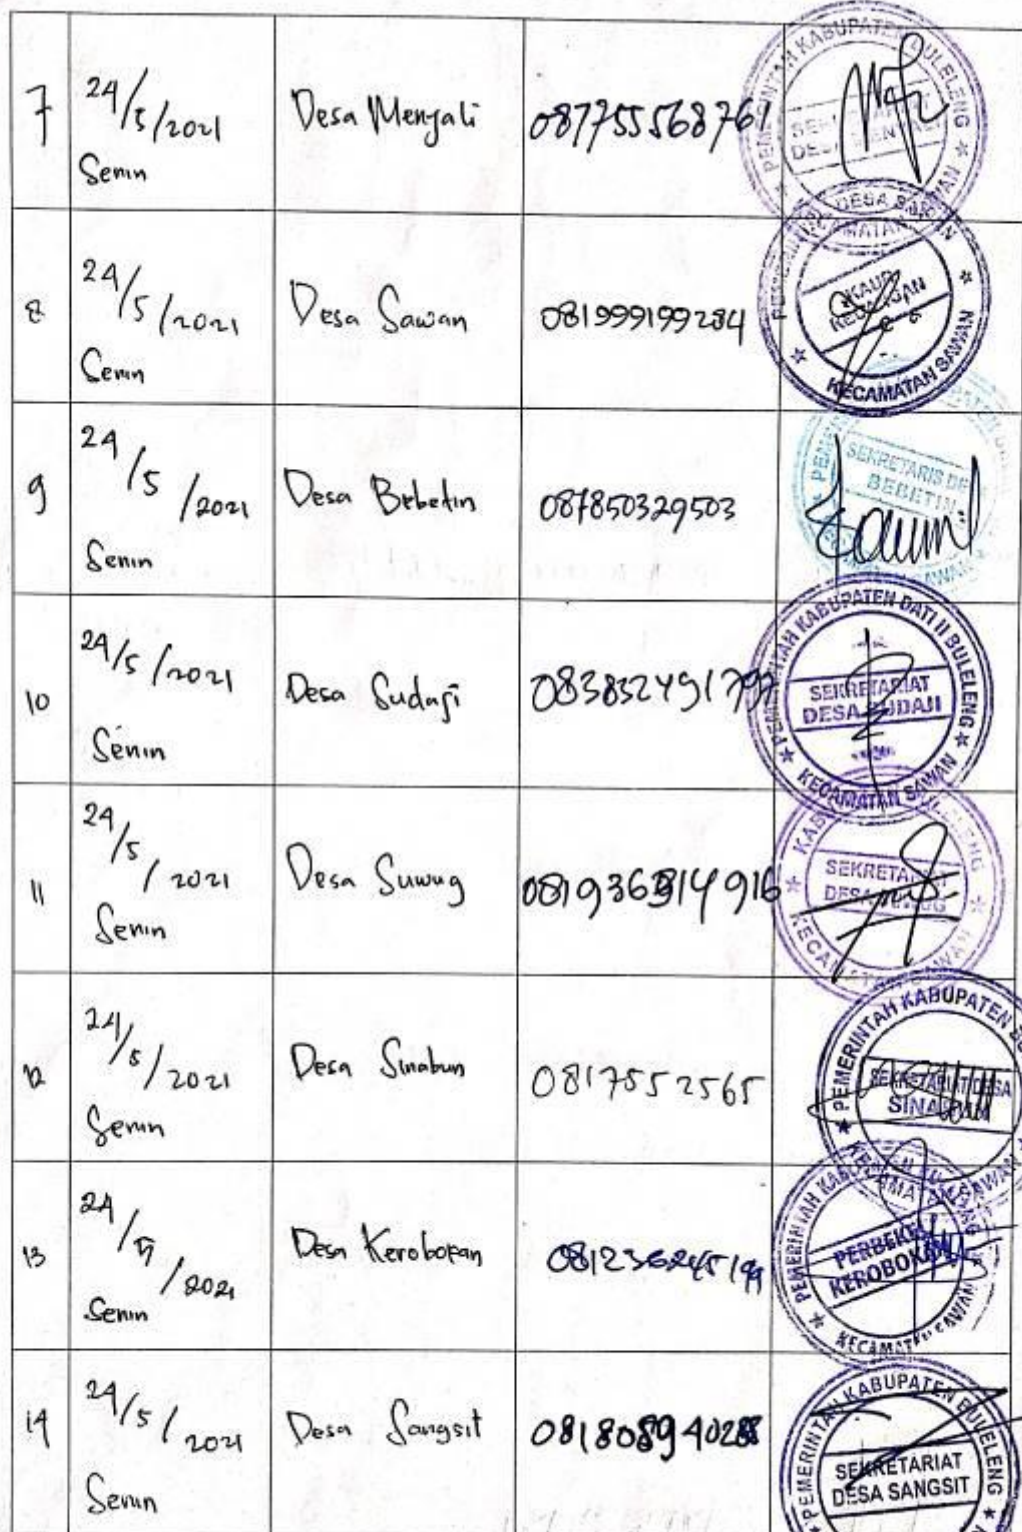 7
24/5/2021
Senin
Desa Menyali
087755568761
PEMERINTAH KABUPATEN BULELENG
8
24/5/2021
Senin
Desa Sawan
081999199284
DESA SAWAN
KAUR
KEUANGAN
KECAMATAN SAWAN
9
24/5/2021
Senin
Desa Bebetin
087850329503
SEKRETARIS DE
BEBETIN
10
24/5/2021
Senin
Desa Sudaji
PEMERINTAH KABUPATEN DATI II BULELENG
SEKRETARIAT
DESA SUDAJI
KECAMATAN SAWAN
11
24/5/2021
Senin
Desa Suwug
SEKRETARIAT
DESA SUWUG
KECAMATAN SAWAN
12
24/5/2021
Senin
Desa Sinabun
0817552565
PEMERINTAH KABUPATEN
SEKRETARIAT DESA
SINABUN
13
24/5/2021
Senin
Desa Kerobokan
PERBEKEL
KEROBOKAN
KECAMATAN SAWAN
14
24/5/2021
Senin
Desa Sangsit
PEMERINTAH KABUPATEN BULELENG
SEKRETARIAT
DESA SANGSIT